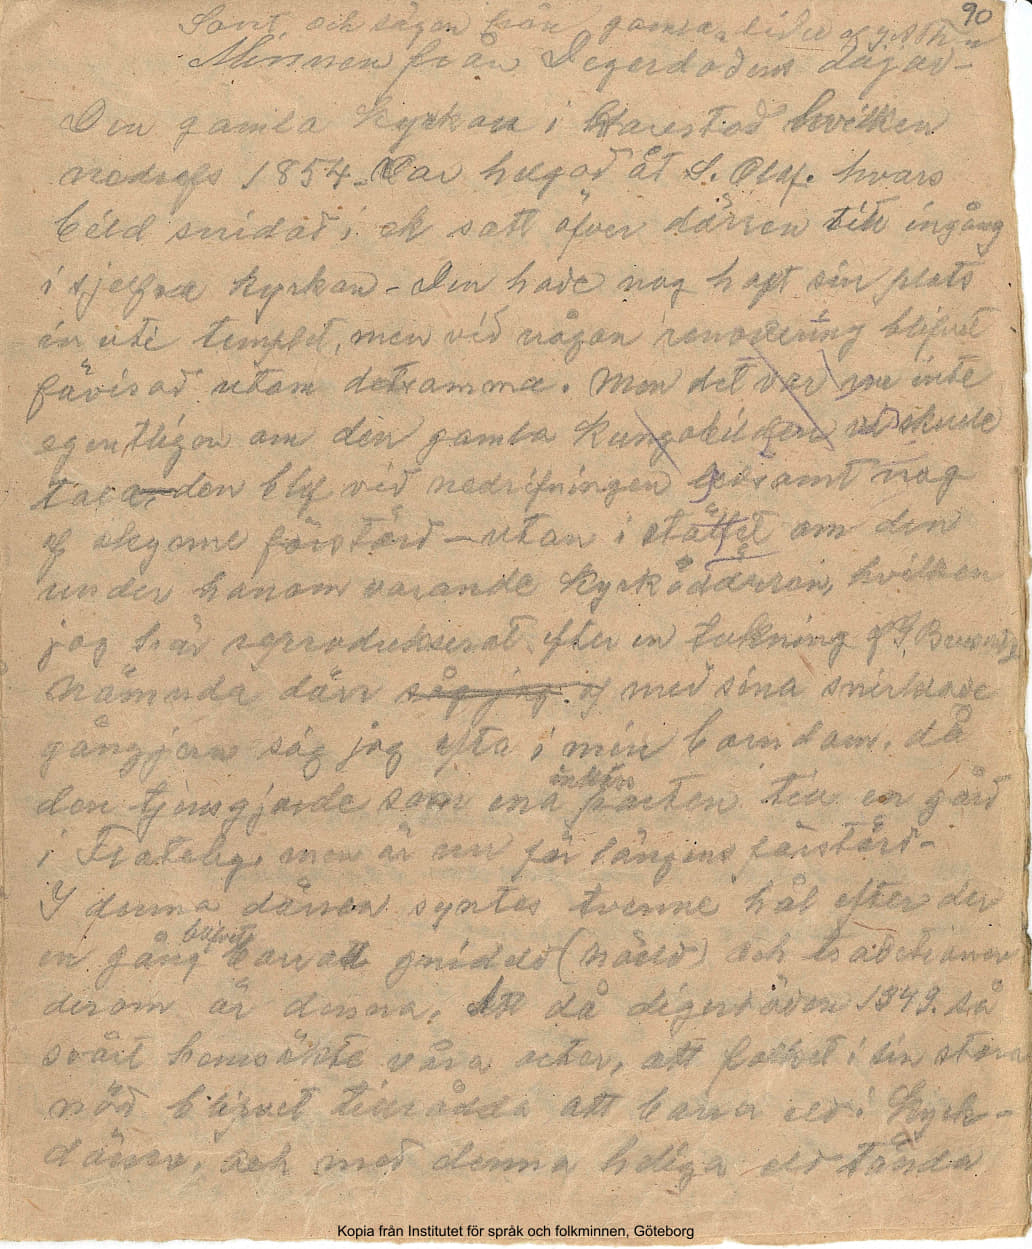 90
Sant och sägen från gamla tider
Minnen från Degerdödens dagar-
Den gamla kyrkan i Harestad hvilken
nedrefs 1854. Var helgad åt S. Olaf. hvars
bild snidad i ek satt öfver dörren till ingång
i sjelfva kyrkan - Den hade nog haft sin plats
in uti templet, men vid någon renovering blifvit
förvisad utom detsamma. Men det var nu inte
egentligen om den gamla kungabilden vi skulle
tala, den blef vid nedrifningen ledsamt nog
af okynne förstörd - utan i stället om den
under honom varande kyrkodörren, hvilken
jag här reproducerat efter en teckning af
Nämnda dörr såg jag af med sina snirklade
gångjern såg jag ofta i min barndom, då
den tjenstgjorde som ena inkörs porten till en gård
i men är nu för längens förstörd-
I denna dörren syntes tvenne hål efter der
en gång blifvit borrat gnideld (nödeld) och traditionen
derom är denna. Att då digerdöden 1349. så
svårt hemsökte våra orter, att folket i sin stora
nöd blifvit tillrådda att borra eld i kyrk-
dörren, och med denna heliga eld tända
Kopia från Institutet för språk och folkminnen, Göteborg